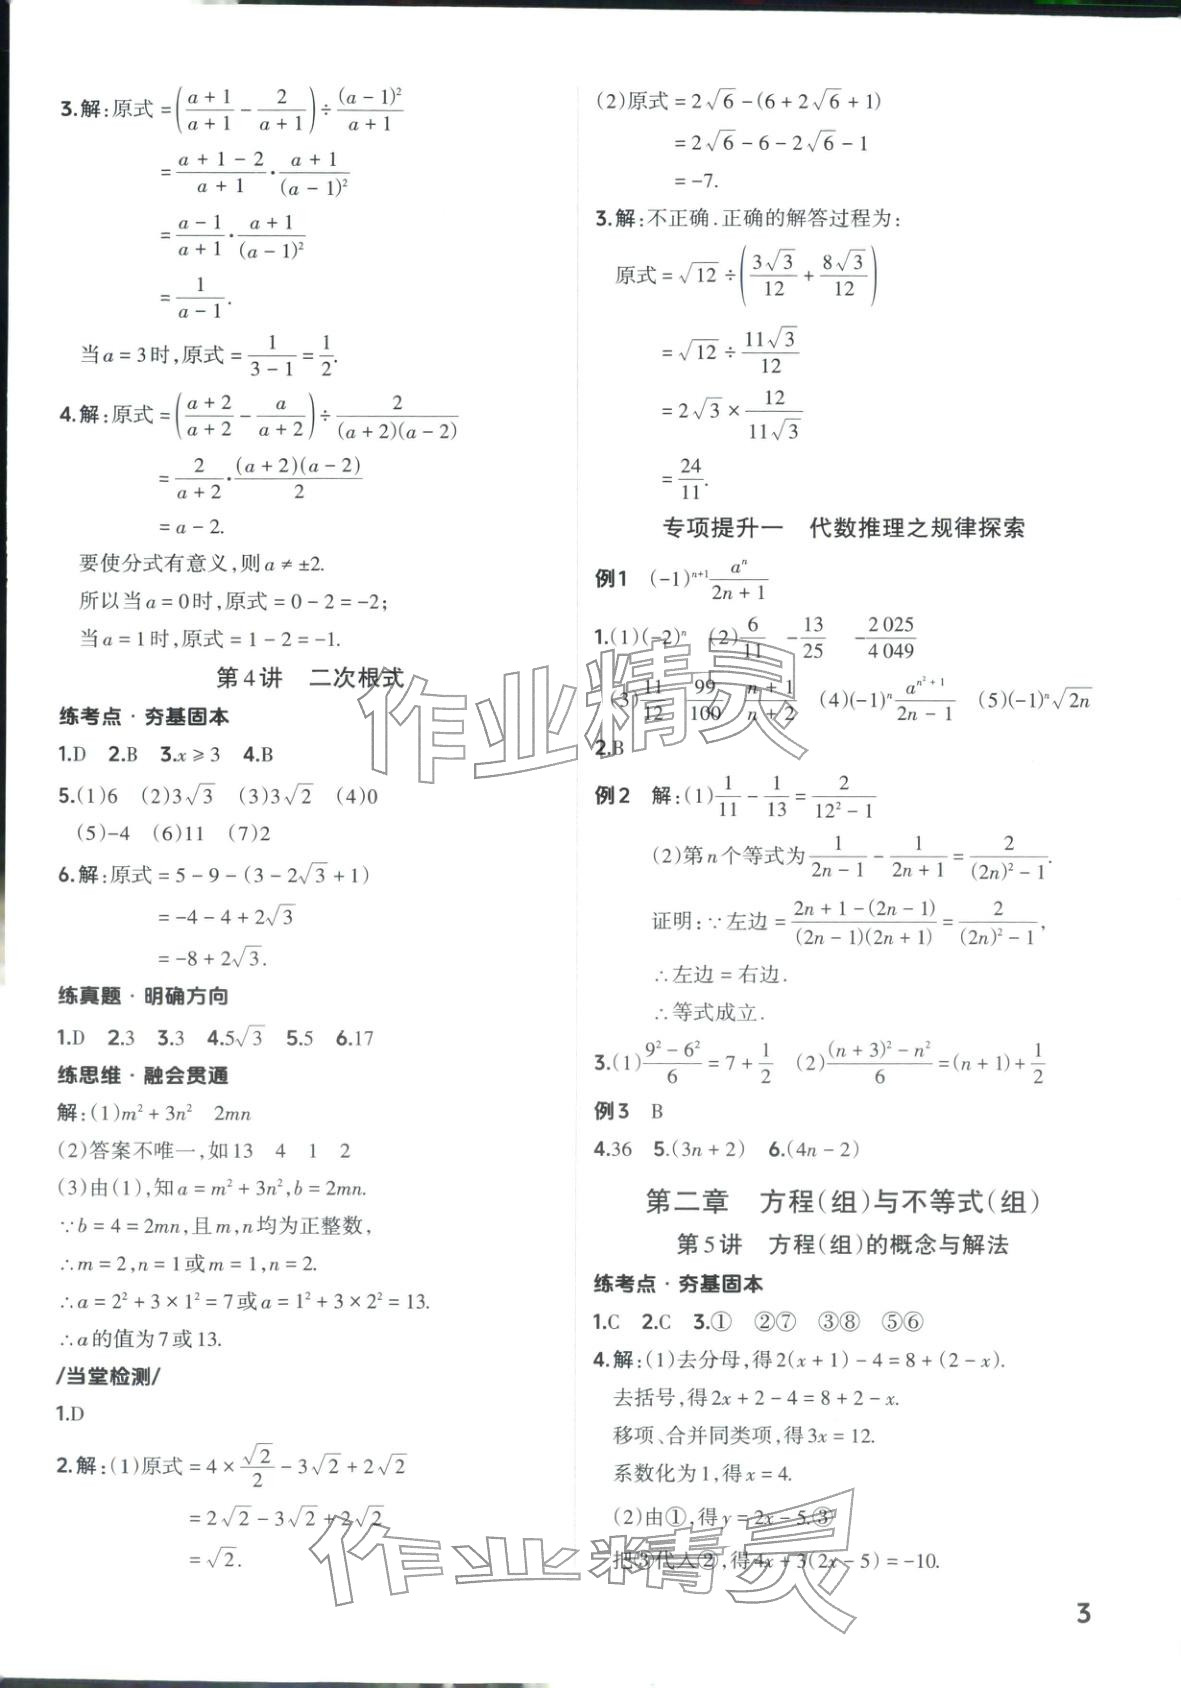 3.解:原式=((a+1)/(a+1)-2/(a+1))÷(a-1)²/(a+1)
=(a+1-2)/(a+1)·(a+1)/(a-1)²
=(a-1)/(a+1)·(a+1)/(a-1)²
=1/(a-1).
当a=3时,原式=1/(3-1)=1/2.
4.解:原式=((a+2)/(a+2)-a/(a+2))÷2/((a+2)(a-2))
=2/(a+2)·(a+2)(a-2)/2
=a-2.
要使分式有意义,则a≠±2.
所以当a=0时,原式=0-2=-2;
当a=1时,原式=1-2=-1.
第4讲 二次根式
练考点·夯基固本
1.D 2.B 3.x≥3 4.B
5.(1)6 (2)3√3 (3)3√2 (4)0
(5)-4 (6)11 (7)2
6.解:原式=5-9-(3-2√3+1)
=-4-4+2√3
=-8+2√3.
练真题·明确方向
1.D 2.3 3.3 4.5√3 5.5 6.17
练思维·融会贯通
解:(1)m²+3n² 2mn
(2)答案不唯一,如13 4 1 2
(3)由(1),知a=m²+3n²,b=2mn.
∵b=4=2mn,且m,n均为正整数,
∴m=2,n=1或m=1,n=2.
∴a=2²+3×1²=7或a=1²+3×2²=13.
∴a的值为7或13.
/当堂检测/
1.D
2.解:(1)原式=4×√2/2-3√2+2√2
=2√2-3√2+2√2
=√2.
(2)原式=2√6-(6+2√6+1)
=2√6-6-2√6-1
=-7.
3.解:不正确.正确的解答过程为:
原式=√12÷(3√3/12+8√3/12)
=√12÷11√3/12
=2√3×12/(11√3)
=24/11.
专项提升一 代数推理之规律探索
例1 (-1)ⁿ⁺¹aⁿ/(2n+1)
1.(1)(-2)ⁿ (2)6/11 -13/25 -2025/4049
(3)11/12 99/100 (n+1)/(n+2) (4)(-1)ⁿa^(n²+1)/(2n-1) (5)(-1)ⁿ√2n
2.B
例2 解:(1)1/11-1/13=2/(12²-1)
(2)第n个等式为1/(2n-1)-1/(2n+1)=2/((2n)²-1).
证明:∵左边=(2n+1-(2n-1))/((2n-1)(2n+1))=2/((2n)²-1),
∴左边=右边.
∴等式成立.
3.(1)(9²-6²)/6=7+1/2 (2)((n+3)²-n²)/6=(n+1)+1/2
例3 B
4.36 5.(3n+2) 6.(4n-2)
第二章 方程(组)与不等式(组)
第5讲 方程(组)的概念与解法
练考点·夯基固本
1.C 2.C 3.① ②⑦ ③⑧ ⑤⑥
4.解:(1)去分母,得2(x+1)-4=8+(2-x).
去括号,得2x+2-4=8+2-x.
移项、合并同类项,得3x=12.
系数化为1,得x=4.
(2)由①,得y=2x-5.③
把③代入②,得4x+3(2x-5)=-10.
作业精灵
作业精灵
3